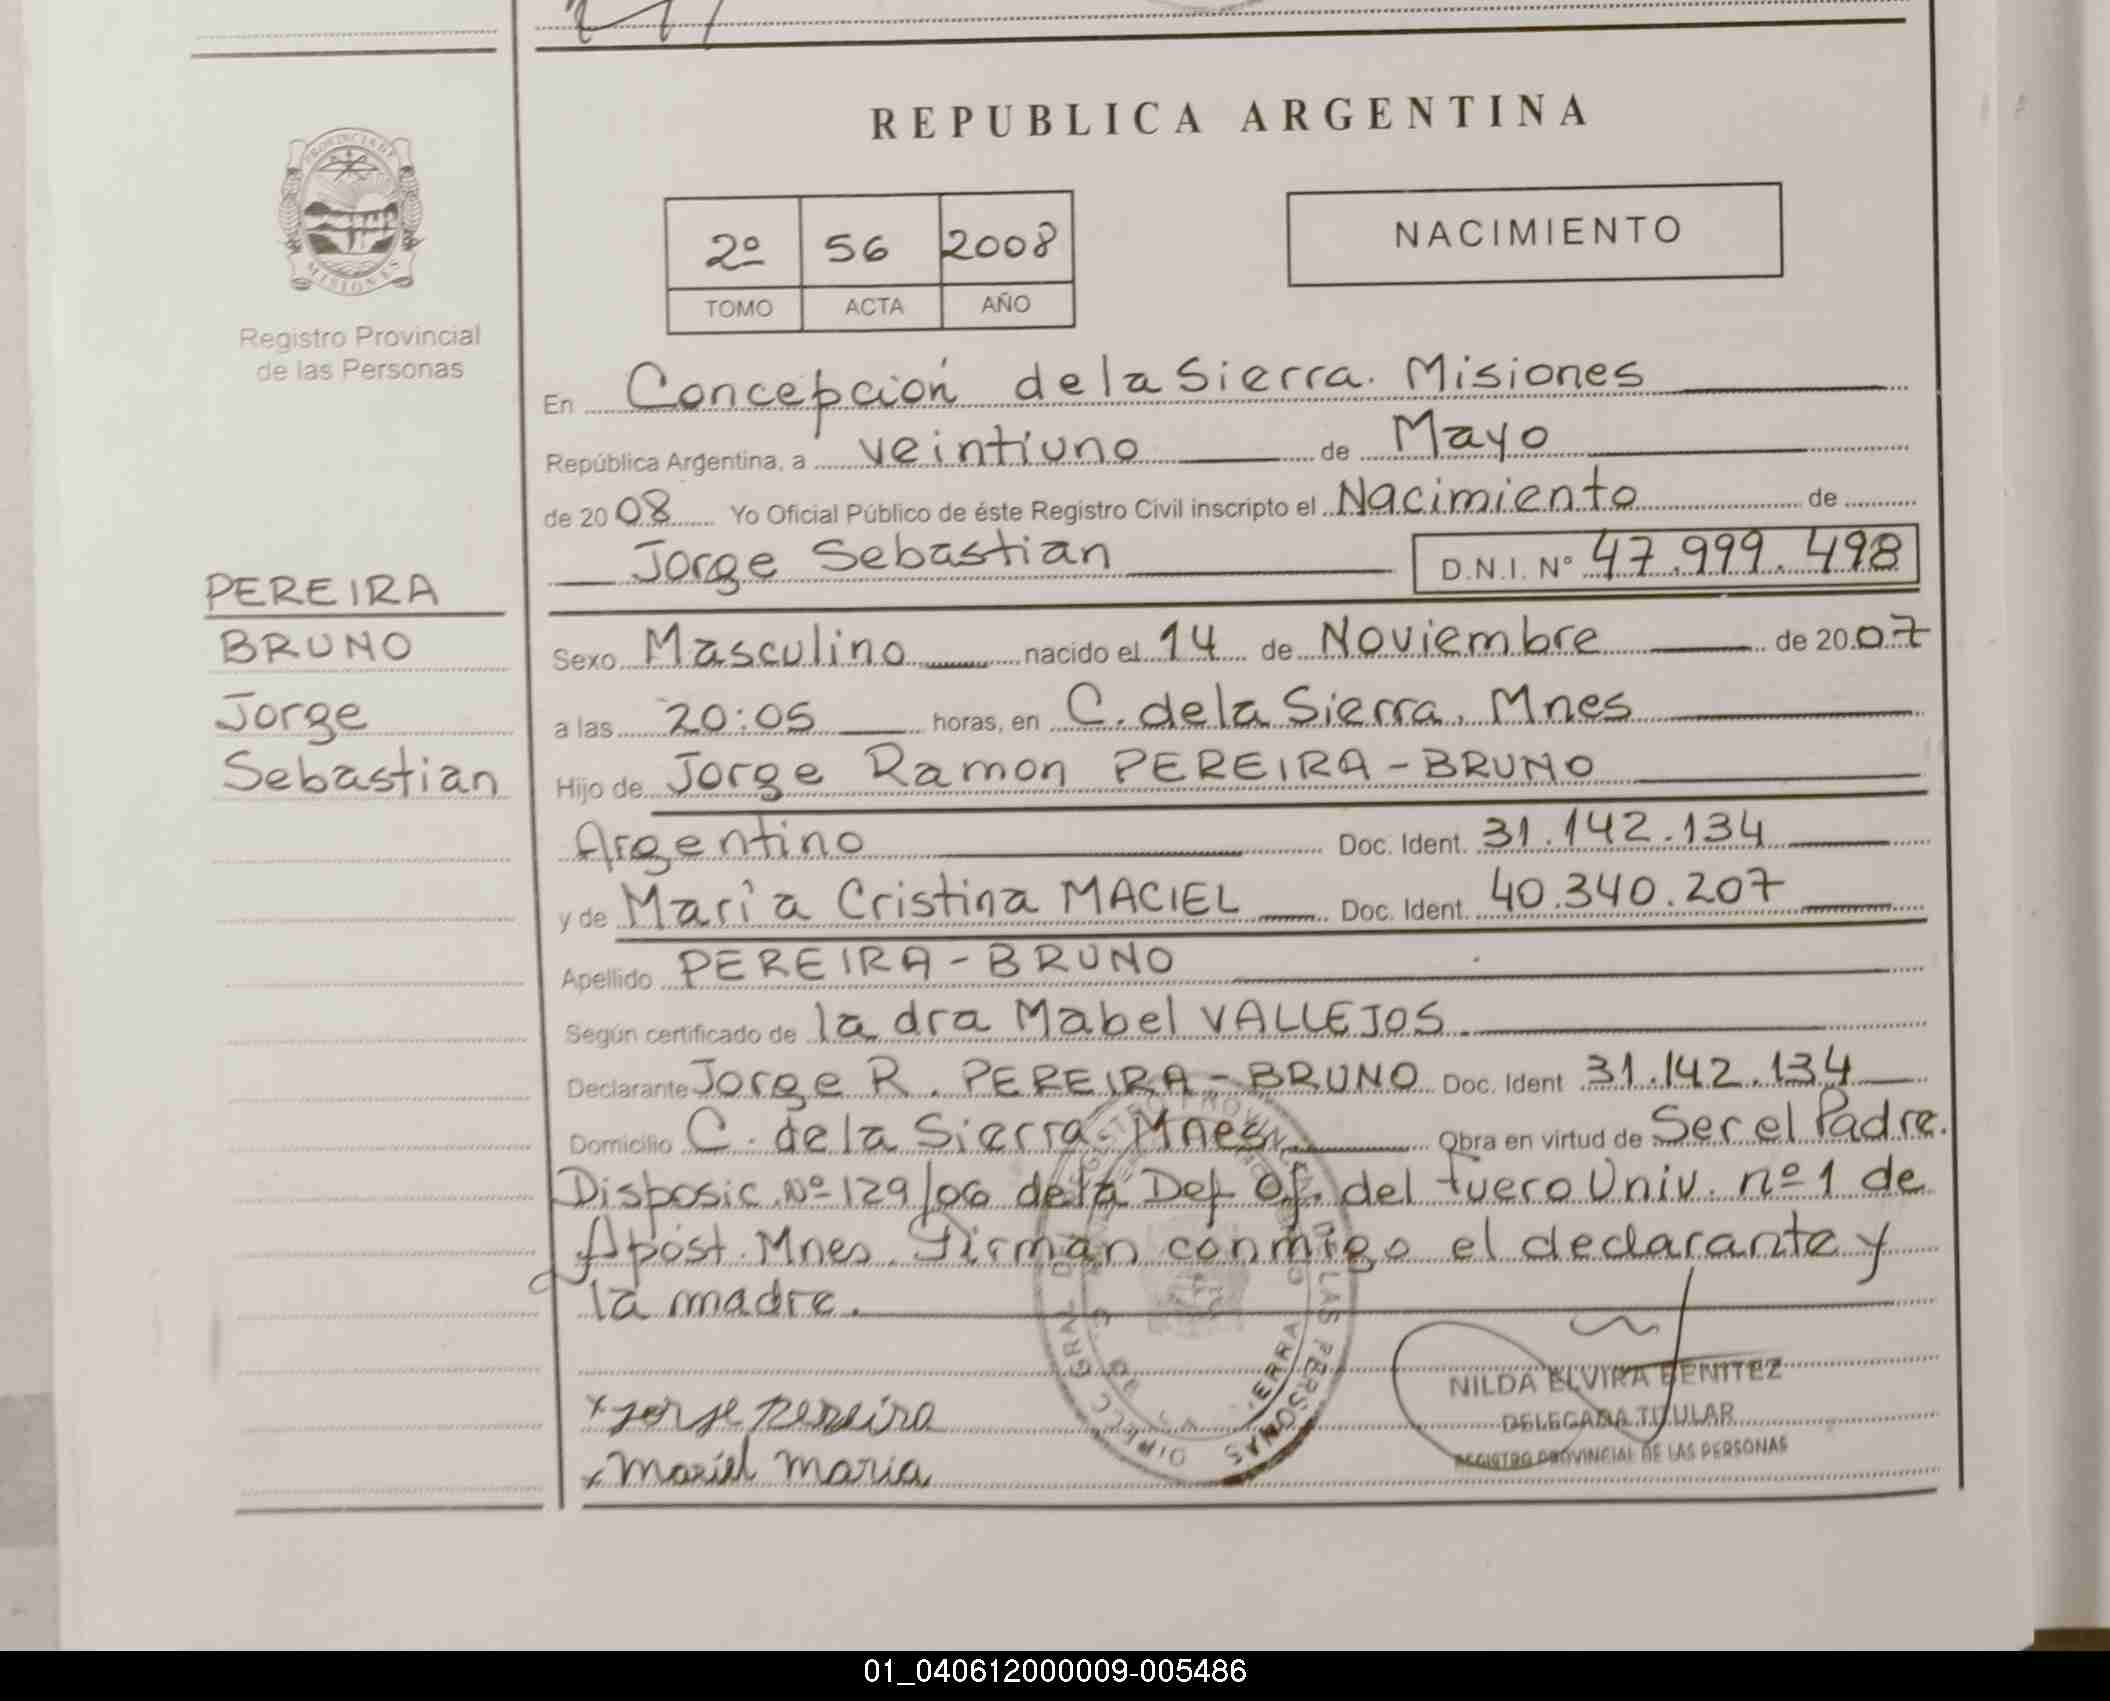 REPUBLICA ARGENTINA
2º 56 2008
TOMO ACTA AÑO
NACIMIENTO
PROVINCIA DE
MISIONES
Registro Provincial
de las Personas
PEREIRA
BRUNO
Jorge
Sebastian
En Concepción de la Sierra. Misiones
República Argentina, a veintiuno de Mayo
de 2008 Yo Oficial Público de éste Registro Civil inscripto el Nacimiento de
Jorge Sebastian D.N.I. Nº 47.999.498
Sexo Masculino nacido el 14 de Noviembre de 2007
a las 20:05 horas, en C. de la Sierra. Mnes
Hijo de Jorge Ramon PEREIRA-BRUNO
Argentino Doc. Ident. 31.142.134
y de María Cristina MACIEL Doc. Ident. 40.340.207
Apellido PEREIRA-BRUNO
Según certificado de la dra Mabel VALLEJOS
Declarante Jorge R. PEREIRA-BRUNO Doc. Ident 31.142.134
Domicilio C. de la Sierra-Mnes Obra en virtud de Ser el Padre.
Disposic. Nº 129/06 de la Def. Of. del fuero Univ. nº 1 de
Apóst. Mnes. Firman conmigo el declarante y
la madre.
x Jorge Pereira
x Maciel Maria
NILDA ELVIRA BENITEZ
DELEGADA TITULAR
REGISTRO PROVINCIAL DE LAS PERSONAS
01_040612000009-005486